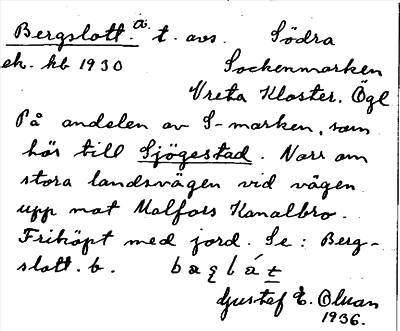 Bergslott. a. t. avs. Södra
ek. kb 1930 Sockenmarken
Vreta Kloster. Ögl
På andelen av S-marken, som
hör till Sjögestad. Norr om
stora landsvägen vid vägen
upp mot Malfors Kanalbro.
Friköpt med jord. Se: Berg-
slott. b.
Gustaf E. Olman
1936.